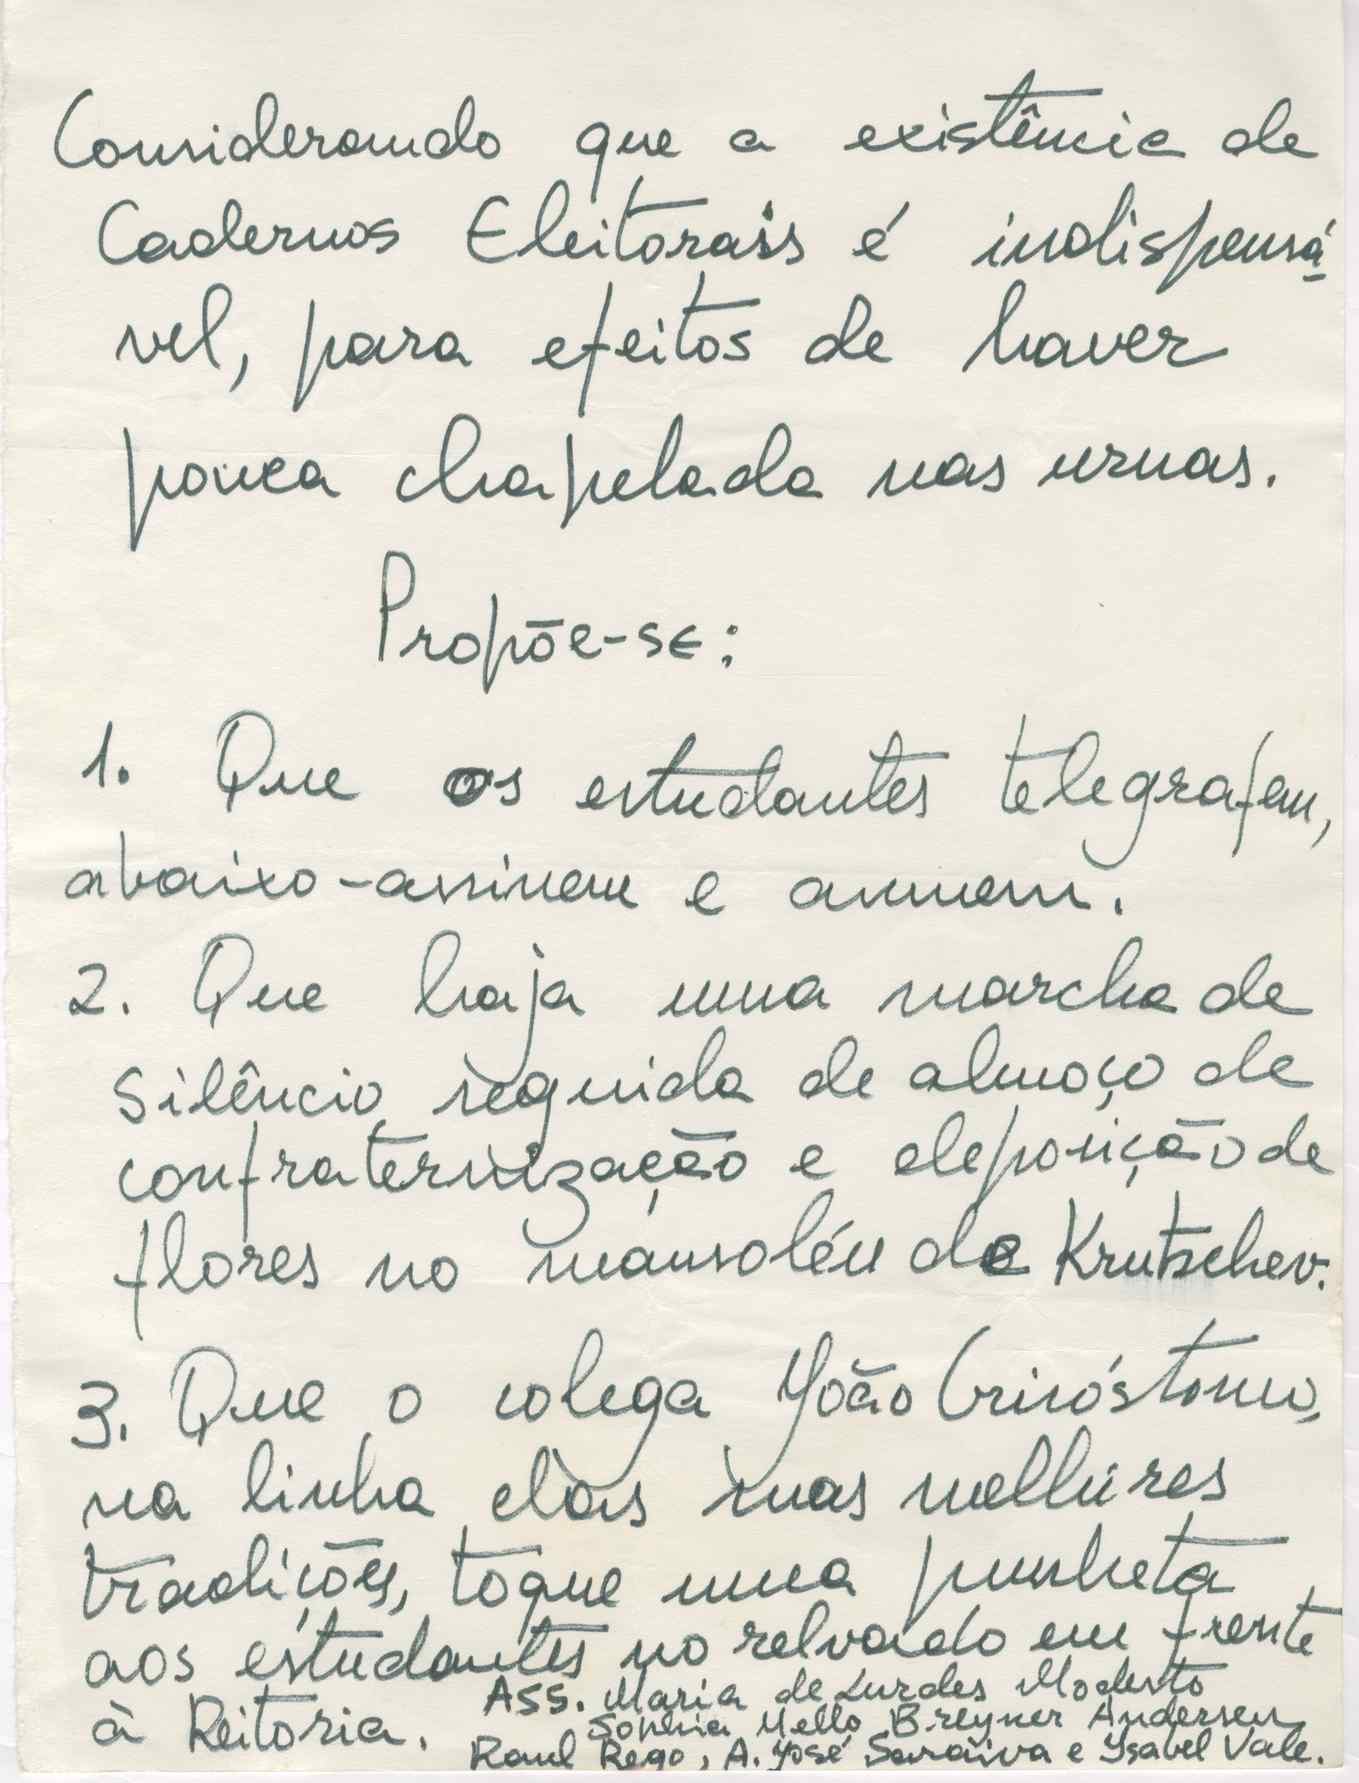 Considerando que a existência de
Cadernos Eleitorais é indispensá-
vel, para efeitos de haver
pouca chapelada nas urnas.
Propõe-se:
1. Que os estudantes telegrafem,
abaixo-assinem e anuem.
2. Que haja uma marcha de
silêncio, seguida de almoço de
confraternização e deposição de
flores no mausoléu de Krutschev.
3. Que o colega João Crisóstomo,
na linha das suas melhores
tradições, toque uma punheta
aos estudantes no relvado em frente
à Reitoria.
Ass. Maria de Lurdes Modesto
Sophia Mello Breyner Andersen
Raul Rego, A. José Saraiva e Ysabel Vale.